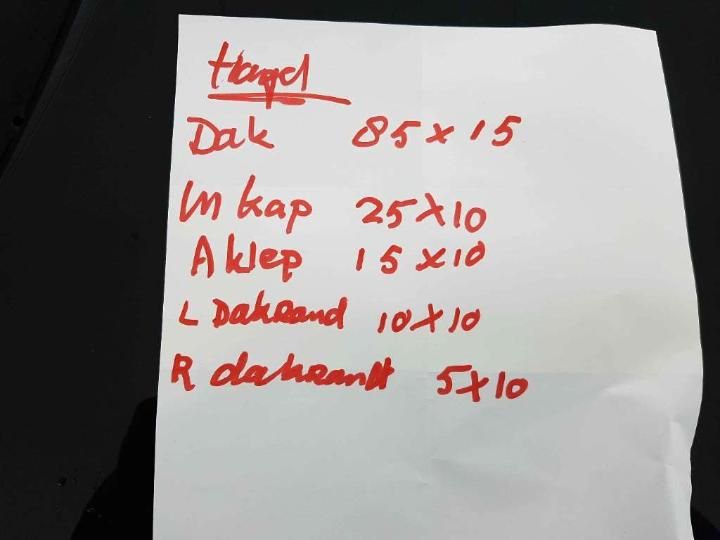 Hagel
Dak 85 x 15
M kap 25 x 10
A klep 15 x 10
L Dakrand 10 x 10
R dakrandt 5 x 10